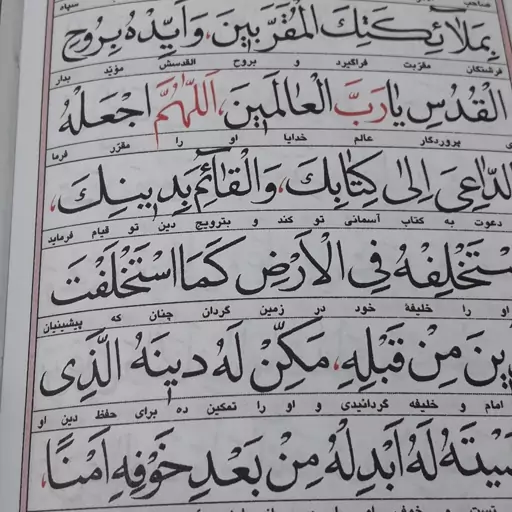 صاحب سپاه
بِمَلَائِكَتِكَ الْمُقَرَّبِينَ، وَأَيِّدْهُ بِرُوحِ
فرشتگان مقرّبت فراگیرد و بروح القدسش مؤیّد بدار
الْقُدُسِ يَا رَبَّ الْعَالَمِينَ، اَللّٰهُمَّ اجْعَلْهُ
ی پروردگار عالم خدایا او را مقرّر فرما
الدَّاعِيَ اِلىٰ كِتَابِكَ، وَالْقَائِمَ بِدِينِكَ،
دعوت به کتاب آسمانی تو کند و بترویج دین تو قیام فرماید
سْتَخْلِفْهُ فِي الْأَرْضِ كَمَا اسْتَخْلَفْتَ
او را خلیفهٔ خود در زمین گردان چنان که پیشینیان
ذِينَ مِنْ قَبْلِهِ، مَكِّنْ لَهُ دِينَهُ الَّذِى
امام و خلیفه گردانیدی و او را تمکین ده برای حفظ دین او
ضَيْتَهُ لَهُ أَبْدِلْهُ مِنْ بَعْدِ خَوْفِهِ اَمْنًا،